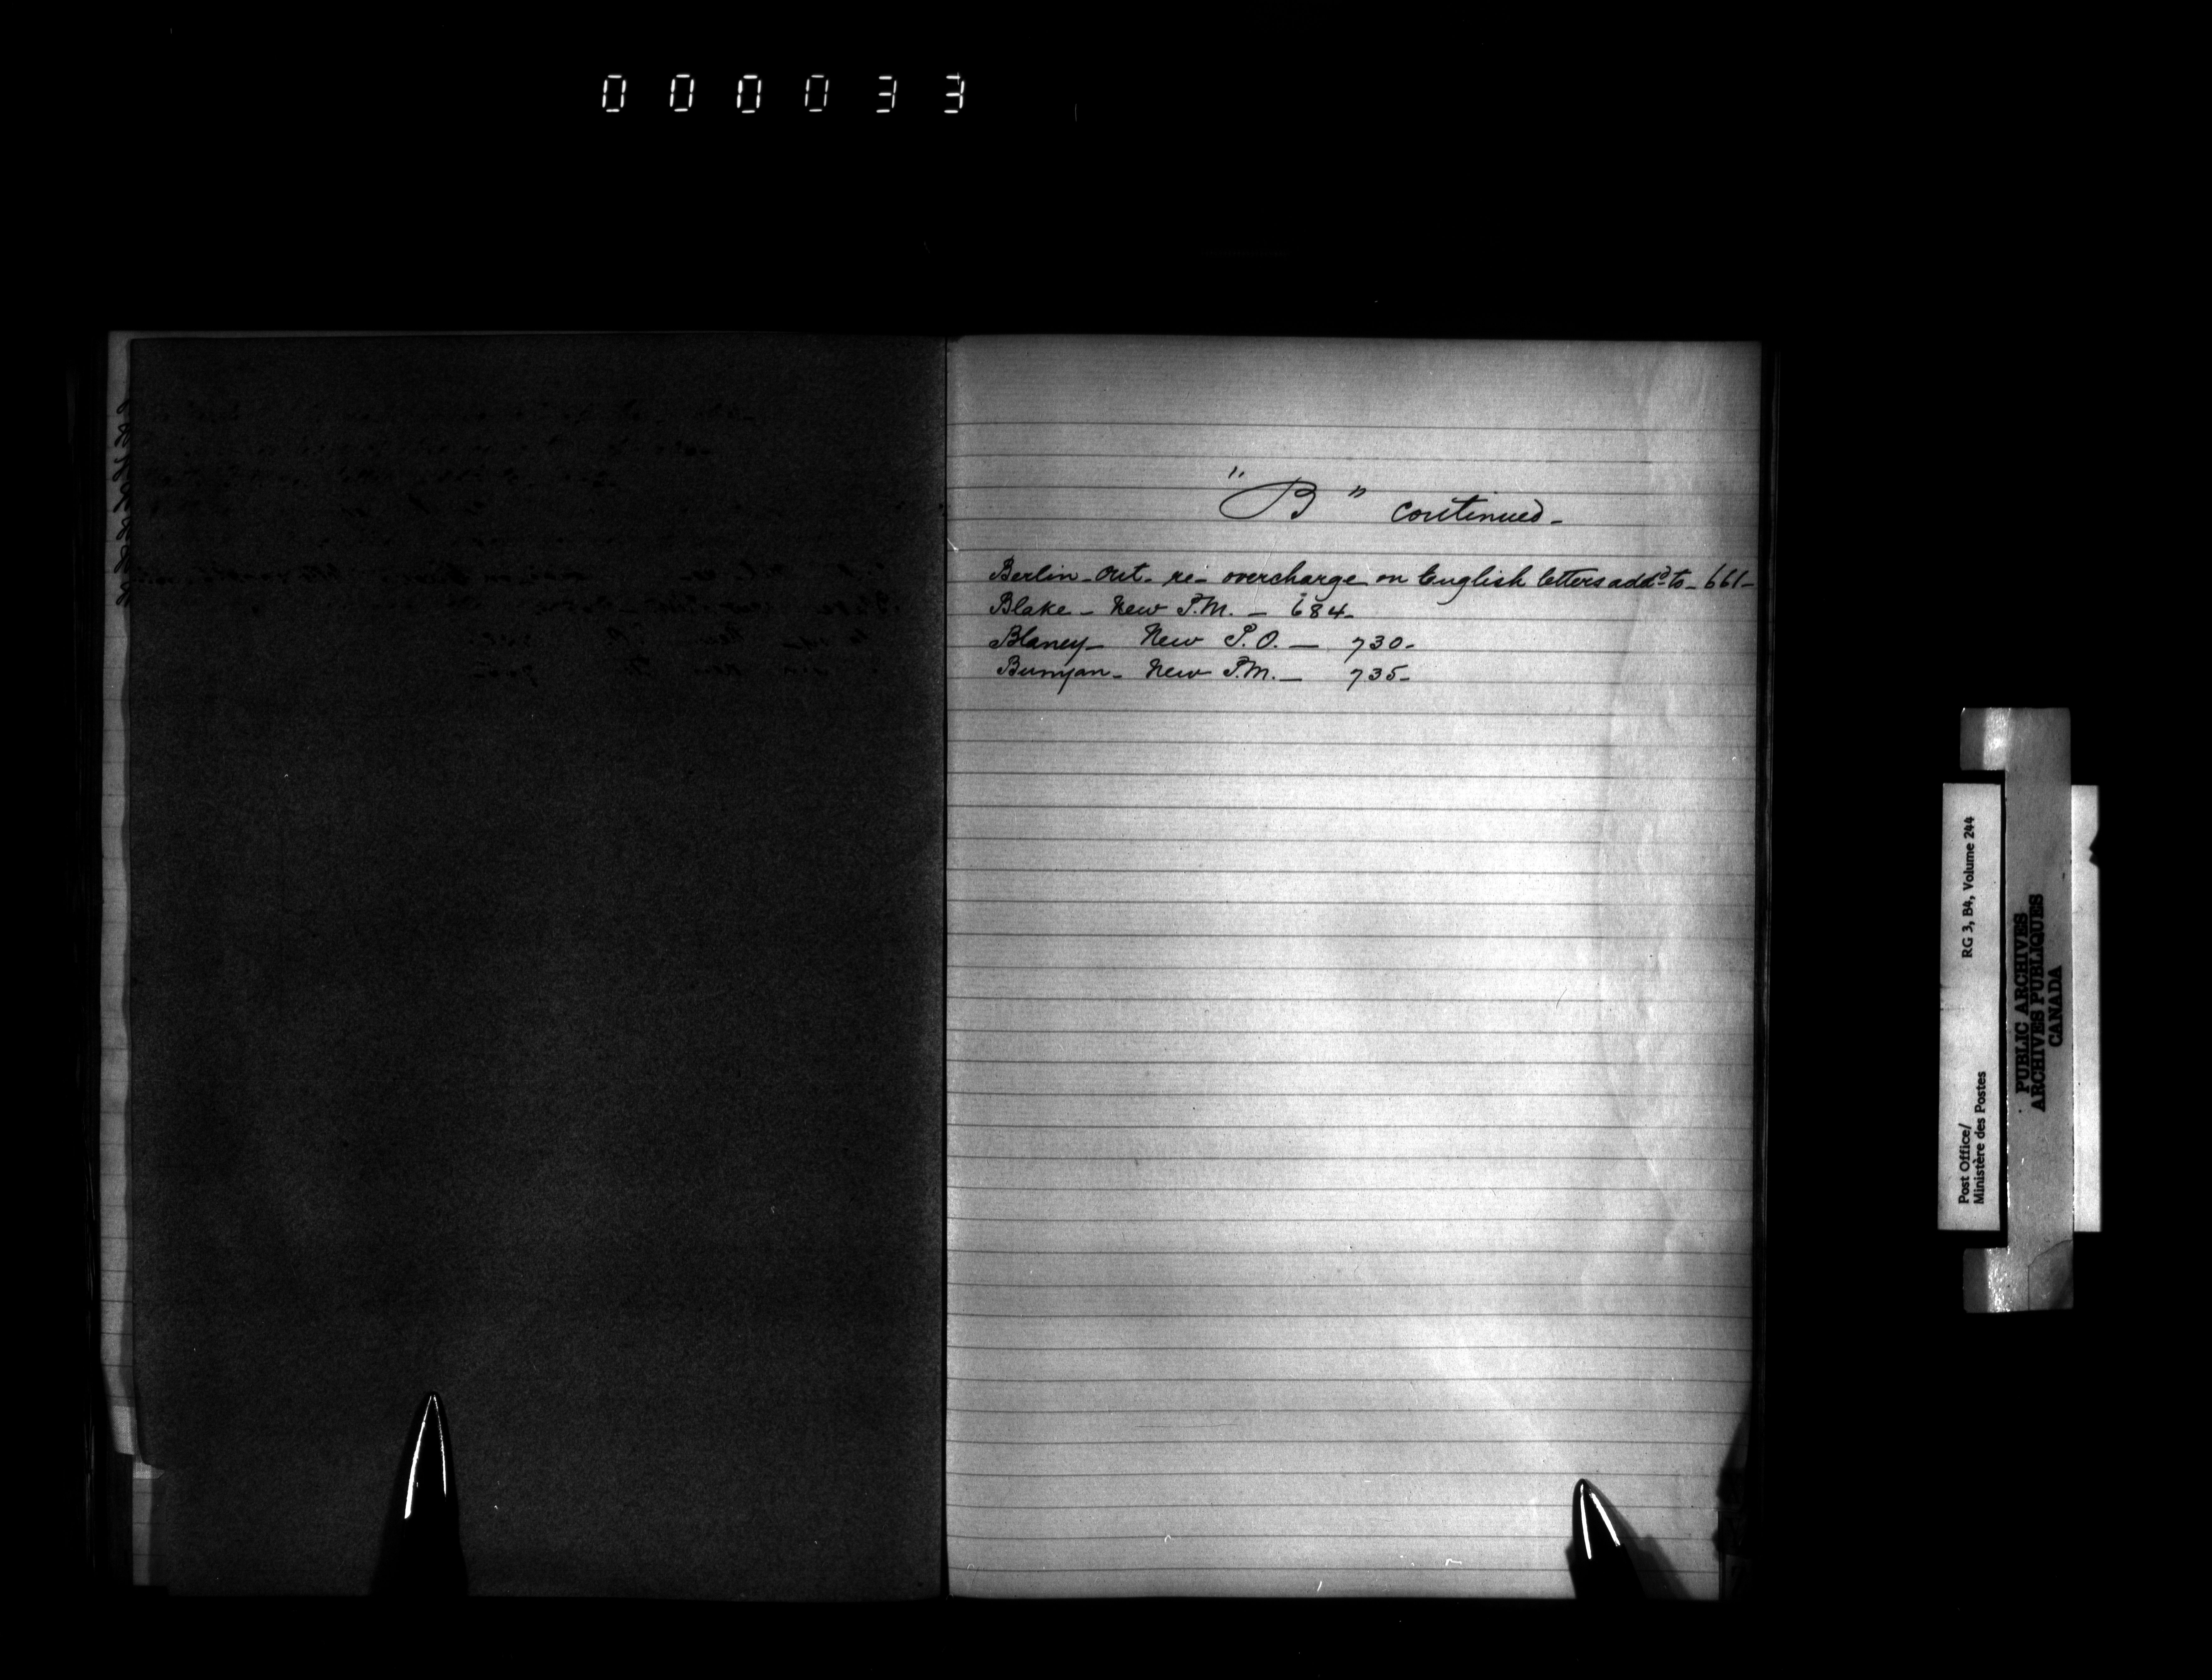 000033
"B" continued-
Berlin - Ont - re - overcharge on English letters addd to - 661-
Blake - New P.M. - 684-
Blaney - New P.O. - 730-
Bunyan - New P.M. - 735-
Post Office/
Ministère des Postes
RG 3, B4, Volume 244
PUBLIC ARCHIVES
ARCHIVES PUBLIQUES
CANADA